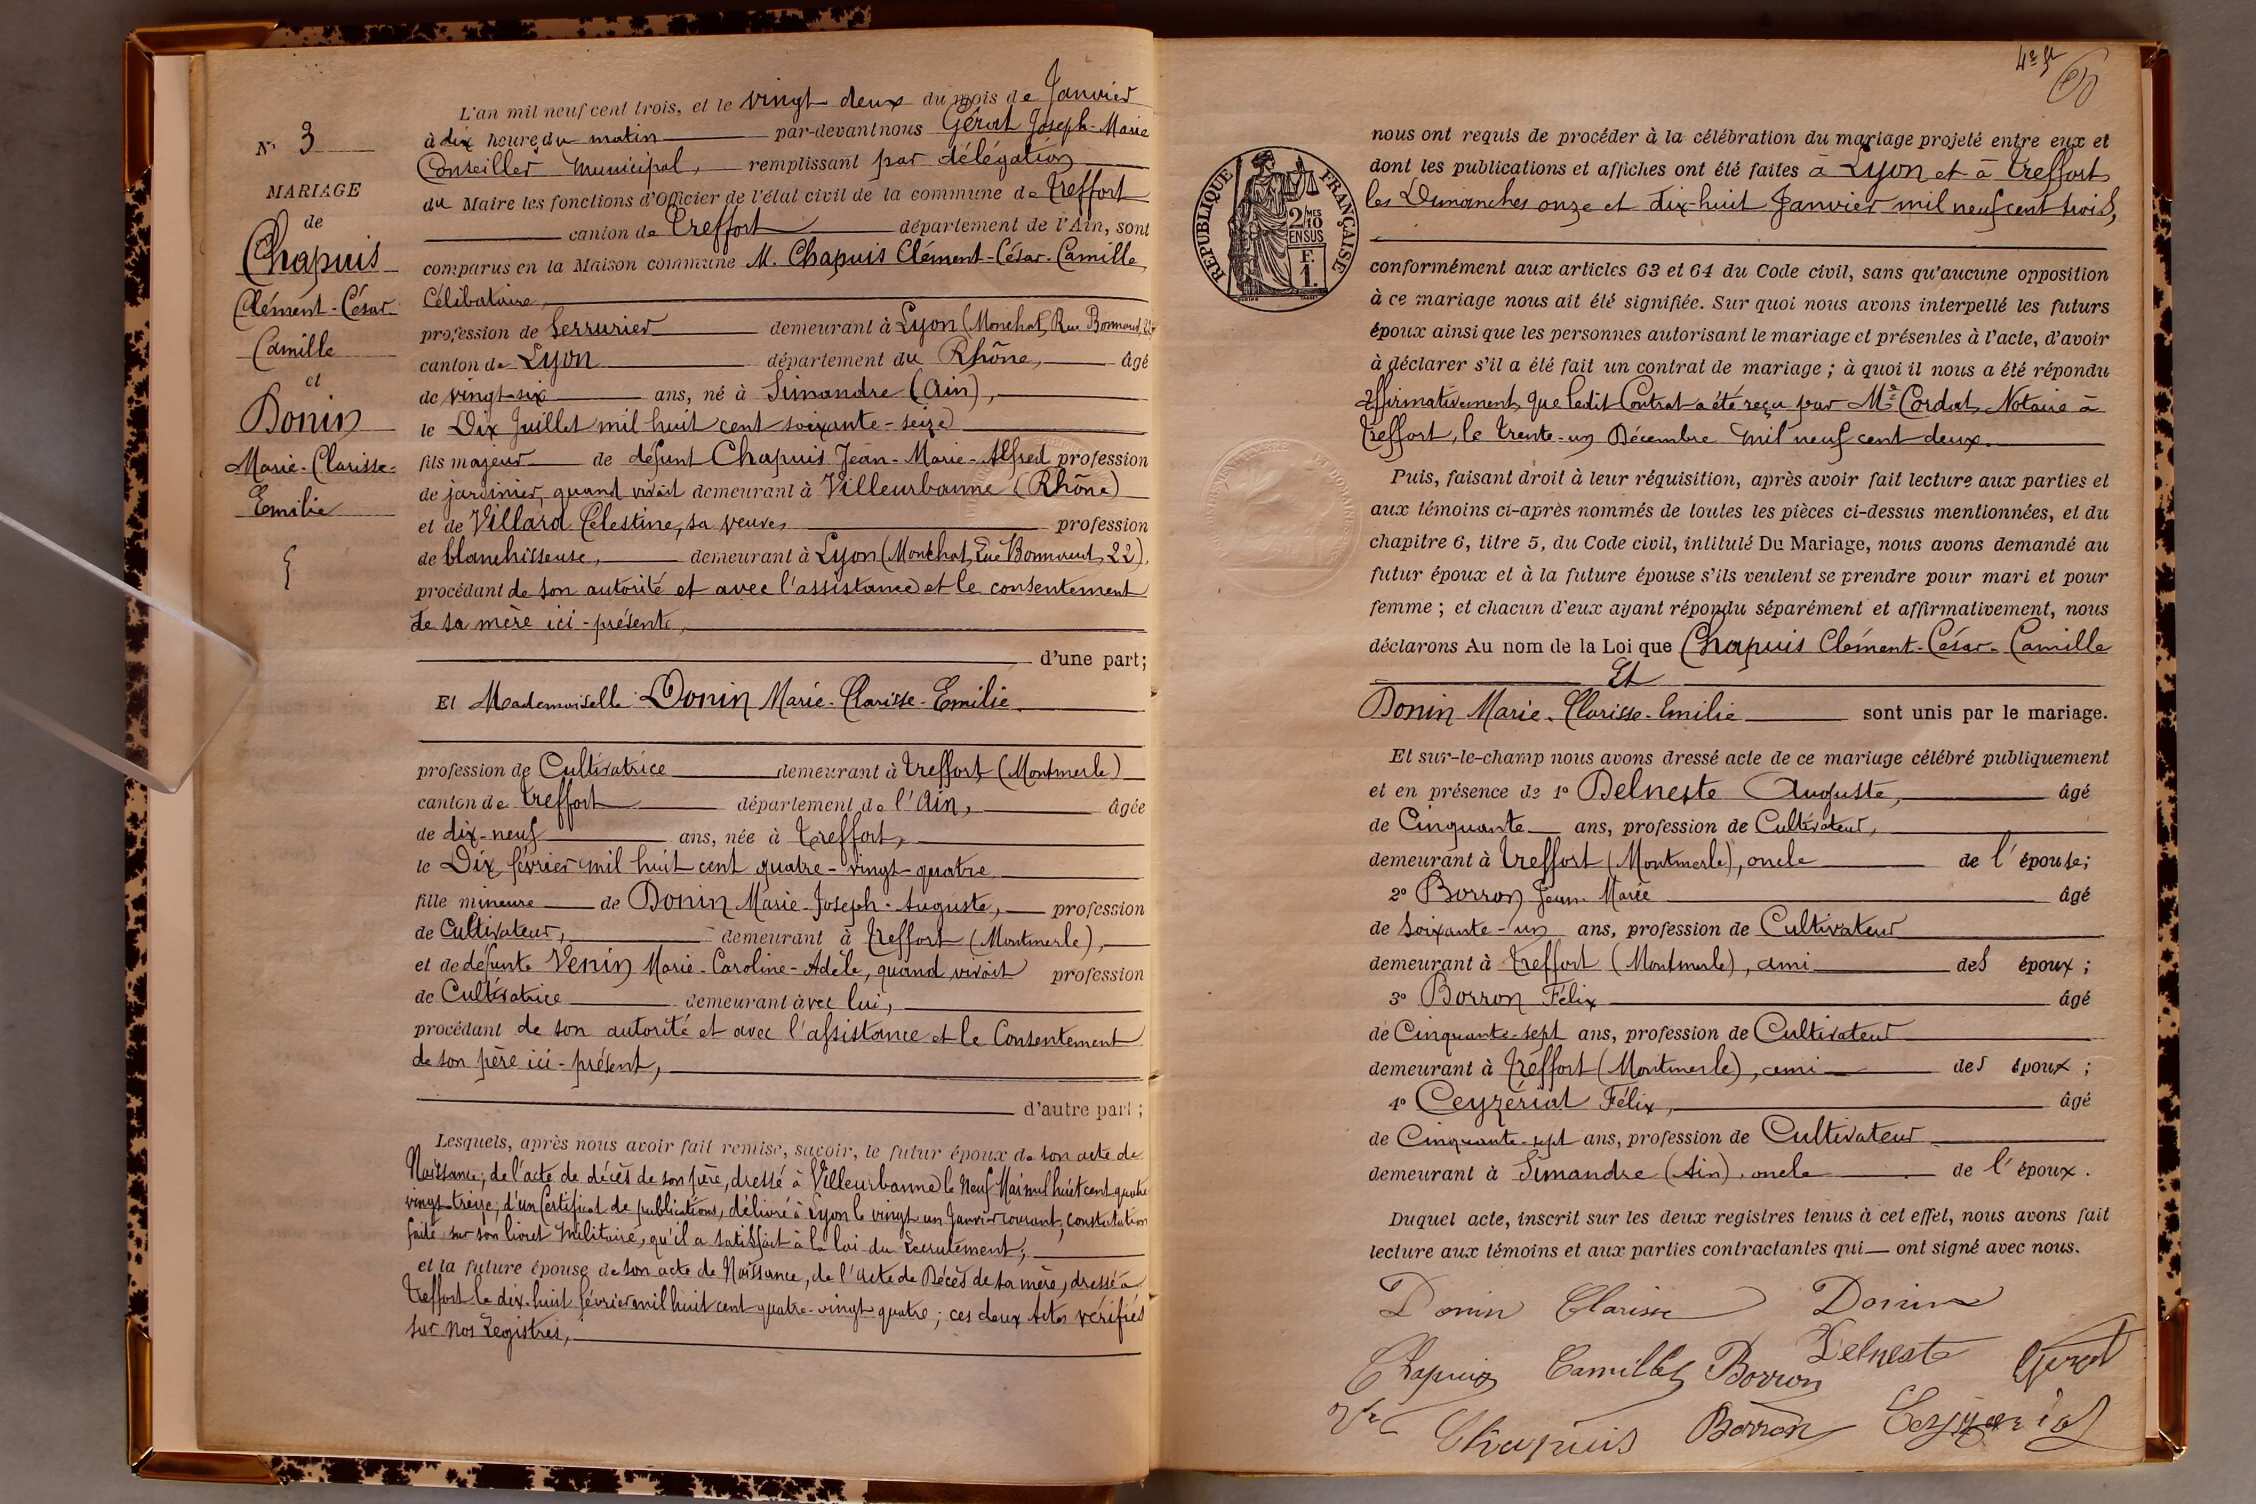 N° 3
MARIAGE
de
Chapuis
Clément-César-
Camille
et
Donin
Marie-Clarisse-
Emilie
L'an mil neuf cent trois, et le vingt deux du mois de Janvier
à dix heure du matin par-devant nous Gérat Joseph-Marie
Conseiller Municipal, remplissant par délégation
du Maire les fonctions d'Officier de l'état civil de la commune de Treffort
canton de Treffort département de l'Ain, sont
comparus en la Maison commune M. Chapuis Clément-César-Camille,
Célibataire,
profession de Serrurier demeurant à Lyon (Monchat, Rue Bonnand, 22)
canton de Lyon département du Rhône, âgé
de vingt-six ans, né à Simandre (Ain),
le Dix Juillet mil huit cent soixante-seize
fils majeur de défunt Chapuis Jean-Marie-Alfred profession
de jardinier, quand vivait demeurant à Villeurbanne (Rhône)
et de Villard Célestine, sa veuve, profession
de blanchisseuse, demeurant à Lyon (Monchat, Rue Bonnand, 22),
procédant de son autorité et avec l'assistance et le consentement
de sa mère ici-présente,
d'une part;
Et Mademoiselle Donin Marie-Clarisse-Emilie
profession de Cultivatrice demeurant à Treffort (Montmerle)
canton de Treffort département de l'Ain, âgée
de dix-neuf ans, née à Treffort,
le Dix février mil huit cent quatre-vingt-quatre
fille mineure de Donin Marie-Joseph-Auguste, profession
de Cultivateur, demeurant à Treffort (Montmerle),
et de défunte Venin Marie-Caroline-Adèle, quand vivait profession
de Cultivatrice demeurant avec lui,
procédant de son autorité et avec l'assistance et le Consentement
de son père ici-présent,
d'autre part;
Lesquels, après nous avoir fait remise, savoir, le futur époux de son acte de
Naissance; de l'acte de décès de son père, dressé à Villeurbanne le Neuf Mai mil huit cent quatre
vingt-treize; d'un Certificat de publications, délivré à Lyon le vingt un Janvier courant, constatation
faite, sur son livret Militaire, qu'il a satisfait à la loi du Recrutement,
et la future épouse de son acte de Naissance, de l'acte de Décès de sa mère, dressé à
Treffort le dix-huit février mil huit cent quatre-vingt quatre; ces deux Actes vérifiés
sur nos Registres,
4e ft
RÉPUBLIQUE FRANÇAISE
2/10MES
EN SUS
F.
1.
nous ont requis de procéder à la célébration du mariage projeté entre eux et
dont les publications et affiches ont été faites à Lyon et à Treffort
les Dimanches onze et dix-huit Janvier mil neuf cent trois,
conformément aux articles 63 et 64 du Code civil, sans qu'aucune opposition
à ce mariage nous ait été signifiée. Sur quoi nous avons interpellé les futurs
époux ainsi que les personnes autorisant le mariage et présentes à l'acte, d'avoir
à déclarer s'il a été fait un contrat de mariage; à quoi il nous a été répondu
affirmativement, que ledit Contrat a été reçu par Me Cordat, Notaire à
Treffort, le trente-un Décembre mil neuf cent deux.
Puis, faisant droit à leur réquisition, après avoir fait lecture aux parties et
aux témoins ci-après nommés de toutes les pièces ci-dessus mentionnées, et du
chapitre 6, titre 5, du Code civil, intitulé Du Mariage, nous avons demandé au
futur époux et à la future épouse s'ils veulent se prendre pour mari et pour
femme; et chacun d'eux ayant répondu séparément et affirmativement, nous
déclarons Au nom de la Loi que Chapuis Clément-César-Camille
Et
Donin Marie-Clarisse-Emilie sont unis par le mariage.
Et sur-le-champ nous avons dressé acte de ce mariage célébré publiquement
et en présence de 1° Delneste Auguste, âgé
de Cinquante ans, profession de Cultivateur,
demeurant à Treffort (Montmerle), oncle de l'épouse;
2° Borron Jean-Marie âgé
de soixante-un ans, profession de Cultivateur
demeurant à Treffort (Montmerle), ami des époux;
3° Borron Félix âgé
de Cinquante-sept ans, profession de Cultivateur
demeurant à Treffort (Montmerle), ami des époux;
4° Ceyzériat Félix, âgé
de Cinquante-sept ans, profession de Cultivateur
demeurant à Simandre (Ain), oncle de l'époux.
Duquel acte, inscrit sur les deux registres tenus à cet effet, nous avons fait
lecture aux témoins et aux parties contractantes qui ont signé avec nous.
Donin Clarisse Donin
Chapuis Camille Borron Delneste Gérat
Ve Chapuis Borron Ceyzériat